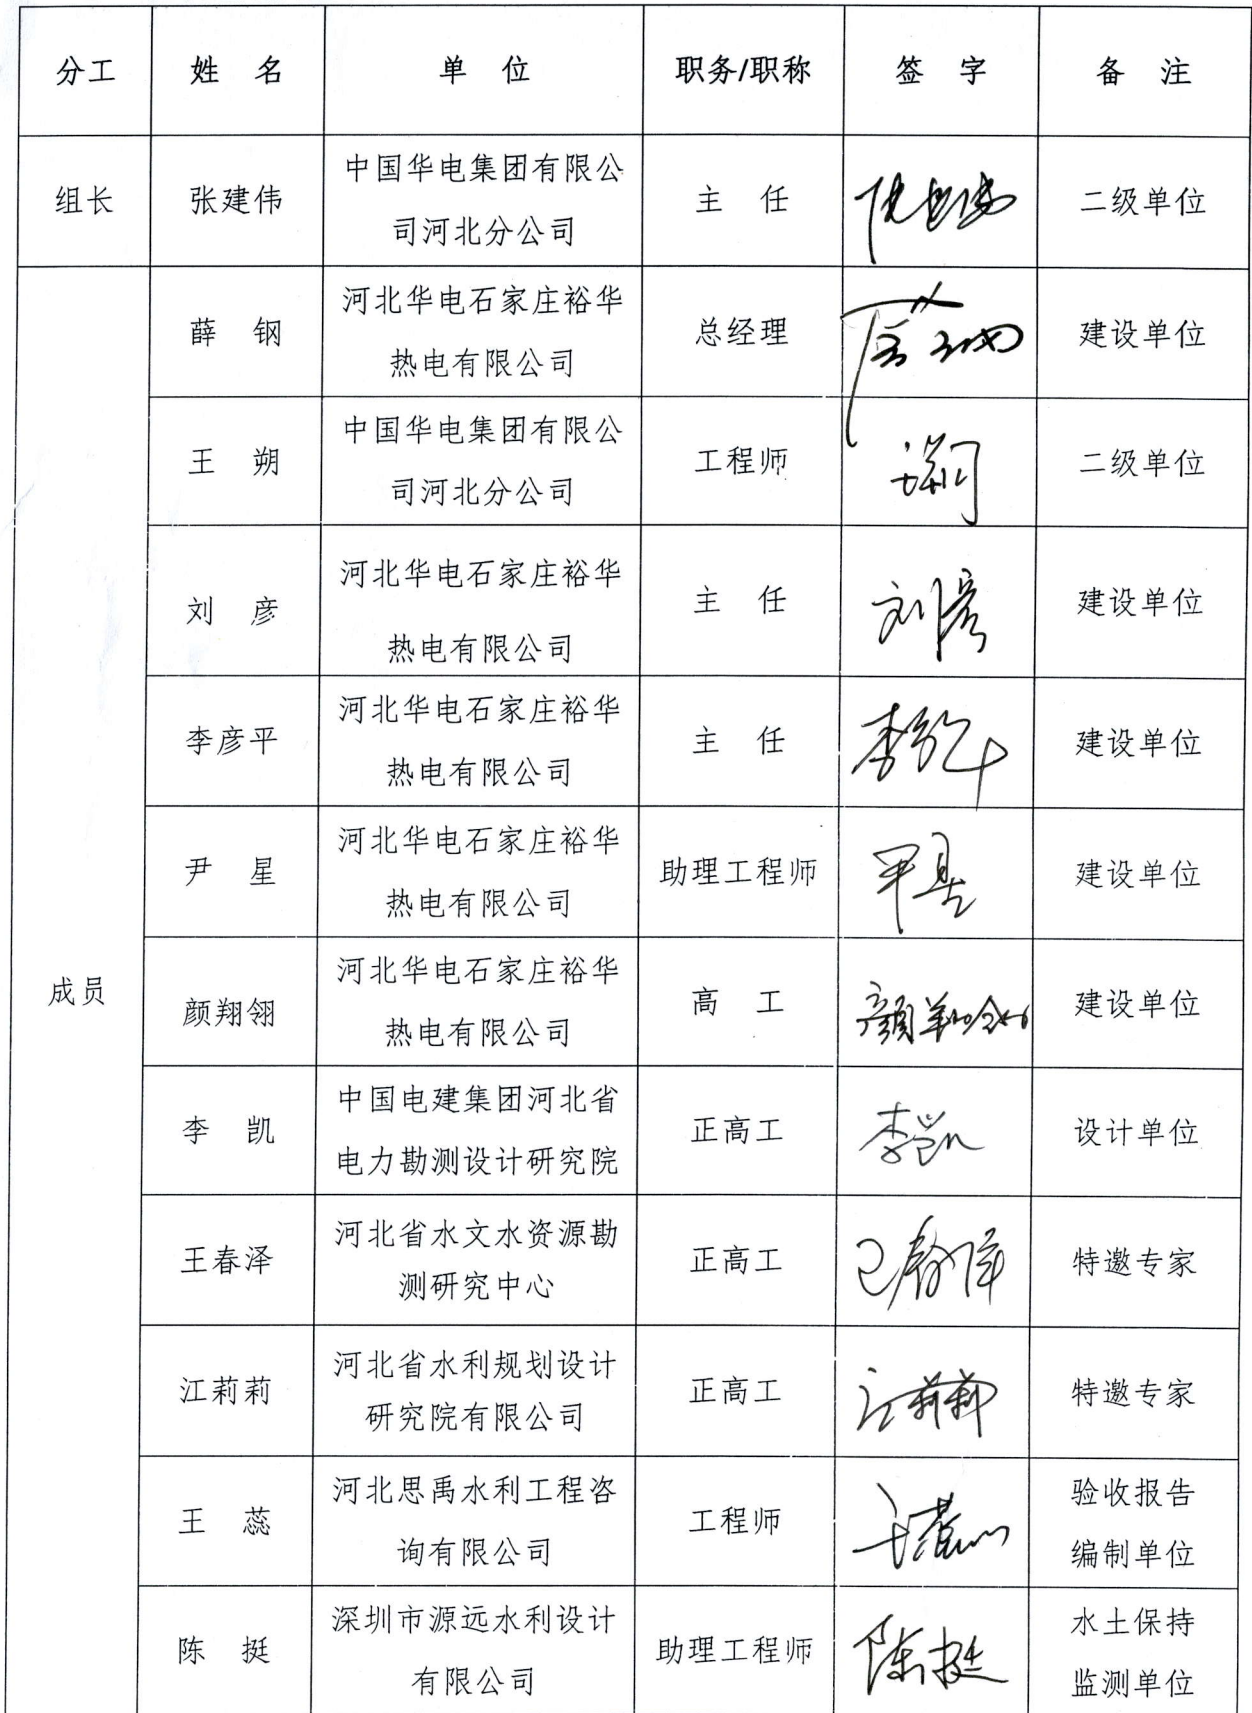 分工 姓 名 单 位 职务/职称 签 字 备 注
组长 张建伟 中国华电集团有限公
司河北分公司 主 任 二级单位
薛 钢 河北华电石家庄裕华
热电有限公司 总经理 建设单位
王 朔 中国华电集团有限公
司河北分公司 工程师 二级单位
刘 彦 河北华电石家庄裕华
热电有限公司 主 任 刘彦 建设单位
李彦平 河北华电石家庄裕华
热电有限公司 主 任 建设单位
尹 星 河北华电石家庄裕华
热电有限公司 助理工程师 尹星 建设单位
成员
颜翔翎 河北华电石家庄裕华
热电有限公司 高 工 颜翔翎 建设单位
李 凯 中国电建集团河北省
电力勘测设计研究院 正高工 李凯 设计单位
王春泽 河北省水文水资源勘
测研究中心 正高工 特邀专家
江莉莉 河北省水利规划设计
研究院有限公司 正高工 江莉莉 特邀专家
王 蕊 河北思禹水利工程咨
询有限公司 工程师 王蕊 验收报告
编制单位
陈 挺 深圳市源远水利设计
有限公司 助理工程师 陈挺 水土保持
监测单位